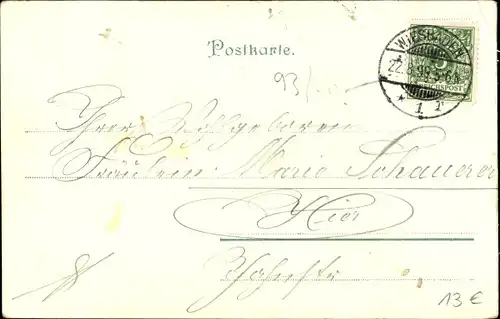 Postkarte.
WIESBADEN
22.8.99.5-6N
* 1 r
REICHSPOST
93/
Ihrer Wohlgeboren
Fräulein Marie Schauerer
Hier
13 €